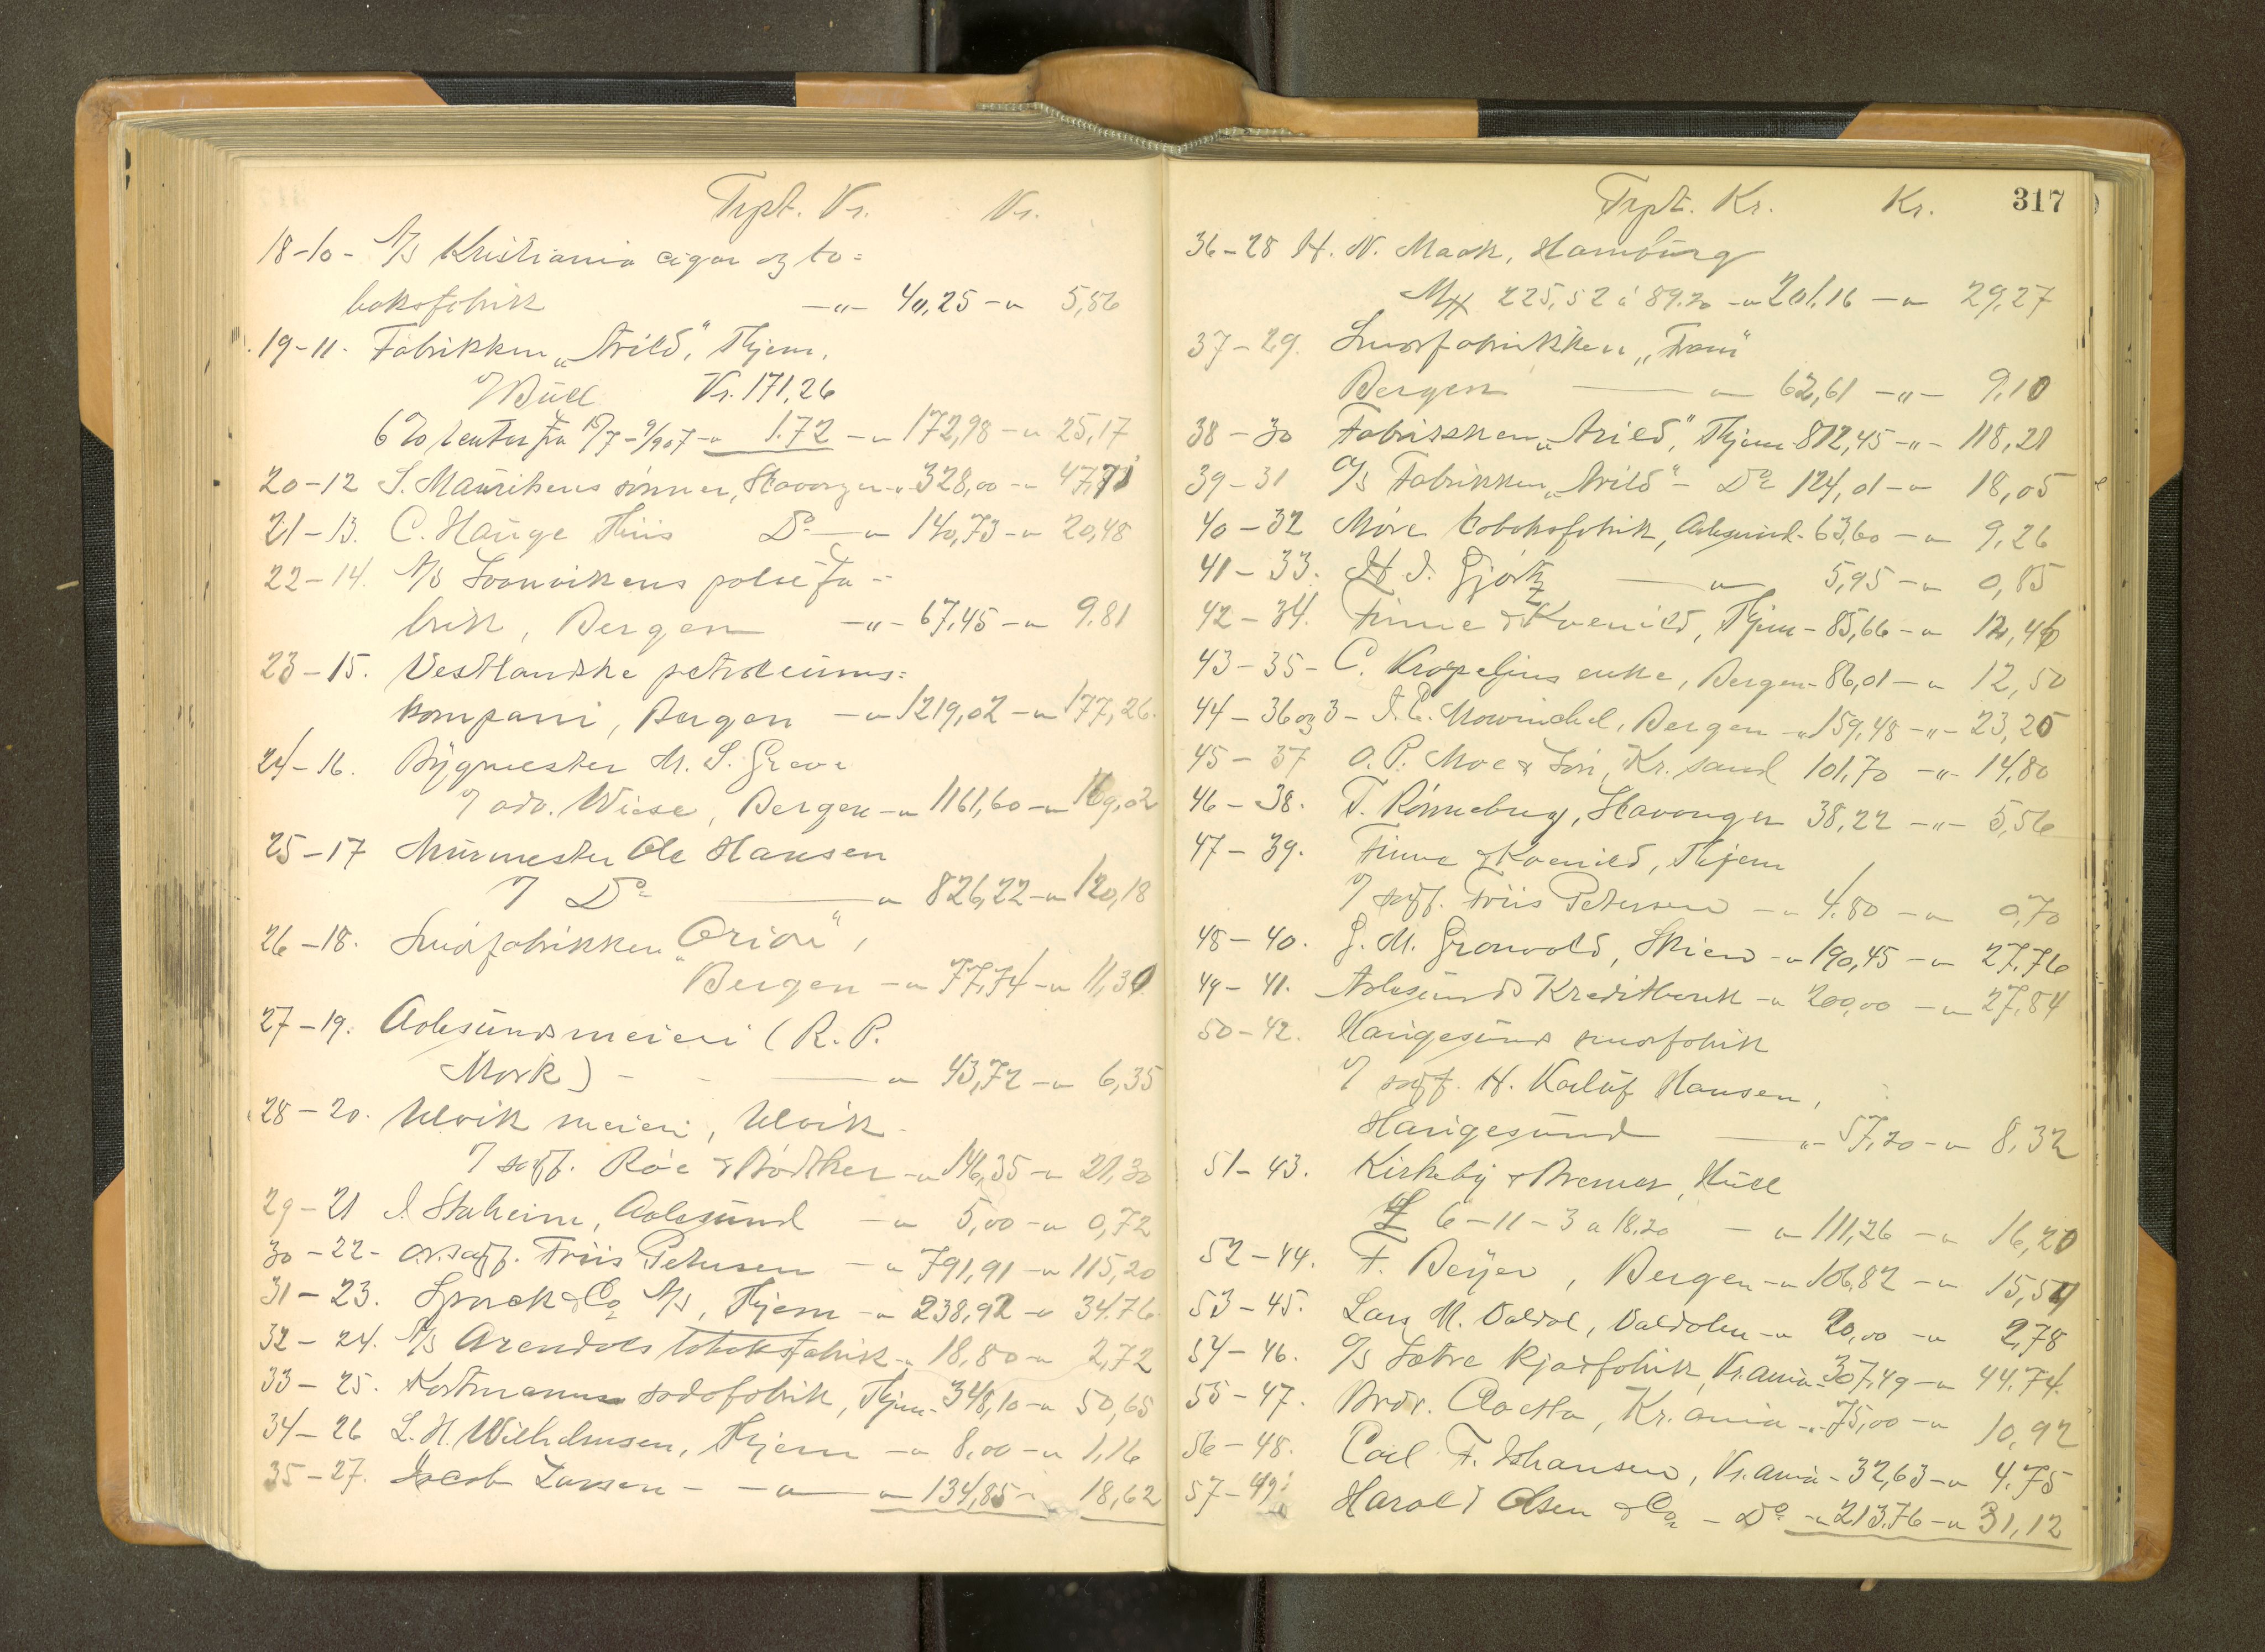 Trpt. Kr. Kr.
18-10- A/S Kristiania cigar og to=
baksfabrik -"- 40,25 -"- 5,86
19-11. Fabrikken „Arild", Thjem,
v/ Bull Kr. 171,26
6% renter fra 15/7-9/907 -"- 1.72 -"- 172,98 -"- 25,17
20-12 S. Mauritzens sønner, Stavanger -"- 328,00 -"- 47,71
21-13. C. Hauge Thiis Do -"- 140,73 -"- 20,48
22-14. A/S Loonvikens pølsefa-
brik, Bergen -"- 67,45 -"- 9.81
23-15. Vestlandske petroleums=
kompani, Bergen -"- 1219,02 -"- 177,26.
24-16. Bygmester M. S. Greve
v/ adv. Wiese, Bergen -"- 1161,60 -"- 169,02
25-17 Murmester Ole Hansen
v/ Do -"- 826,22 -"- 120,18
26-18. Smørfabrikken „Orion",
Bergen -"- 77,74 -"- 11,30
27-19. Aalesunds meieri (R. P.
Mork) - -"- 43,72 -"- 6,35
28-20. Ulvik meieri, Ulvik
v/ sagf. Røe & Bødtker -"- 146,35 -"- 21,30
29-21 I. Staheim, Aalesund -"- 5,00 -"- 0,72
30-22- o.r.sagf. Friis Petersen -"- 791,91 -"- 115,20
31-23. Sporck & Co A/S, Thjem -"- 238,92 -"- 34.76
32-24. A/S Arendals tobaksfabrik -"- 18,80 -"- 2,72
33-25. Kortmanns sodafabrik, Thjem - 348,10 -"- 50,65
34-26 L. H. Wilhelmsen, Thjem -"- 8,00 -"- 1,16
35-27. Jacob Larsen - -"- -"- 134,85 - 18,62
Trpt. Kr. Kr. 317
36-28 H. N. Maack, Hamburg
Mk 225,52 á 89.20 -"- 201,16 -"- 29,27
37-29. Smørfabrikken „Fram"
Bergen -"- 62,61 -"- 9,10
38-30 Fabrikken „Arild", Thjem 812,45 -"- 118,21
39-31 A/S Fabrikken „Arild" - Do 124,01 -"- 18,05
40-32 Møre tobaksfabrik, Aalesund - 63,60 -"- 9,26
41-33. H. I. Gjørtz -"- 5,95 -"- 0,85
42-34. Finne & Kvenild, Thjem - 85,66 -"- 12,46
43-35- C. Krøpeljens enke, Bergen - 86,01 -"- 12,50
44-36 og 3- J. E. Mowinckel, Bergen -"- 159,48 -"- 23,25
45-37 O. P. Moe & Søn, Kr.sand 101,70 -"- 14,80
46-38. T. Rønneberg, Stavanger 38,22 -"- 5,56
47-39. Finne & Kvenild, Thjem
v/ sagf. Friis Petersen -"- 4.80 -"- 0,70
48-40. G. M. Gronvold, Skien -"- 190,45 -"- 27,76
49-41. Aalesunds Kreditbank -"- 200,00 -"- 27,84
50-42. Haugesunds smørfabrik
v/ sagf. H. Valūf Hansen,
Haugesund -"- 57,20 -"- 8,32
51-43. Kirkeby & Bremer, Hull
£ 6-11-3 a 18.20 -"- 111,26 -"- 16,20
52-44. F. Beyer, Bergen -"- 106,82 -"- 15,54
53-45. Lars M. Valdal, Valdalen -"- 20,00 -"- 2,78
54-46. A/S Sætre kjæxfabrik, Kr.ania - 307,49 -"- 44.74.
55-47. Brdr. Aaetta, Kr.ania -"- 75,00 -"- 10,92
56-48. Carl F. Johansen, Kr.ania - 32,63 -"- 4.75
57-49. Harald Olsen & Co - Do -"- 213,76 -"- 31,12